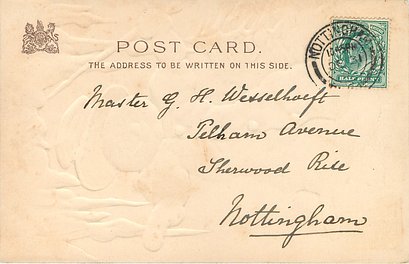 POST CARD.
THE ADDRESS TO BE WRITTEN ON THIS SIDE.
NOTTINGHAM
HALF PENNY
Master G. H. Wesselhoeft
Pelham Avenue
Sherwood Rise
Nottingham